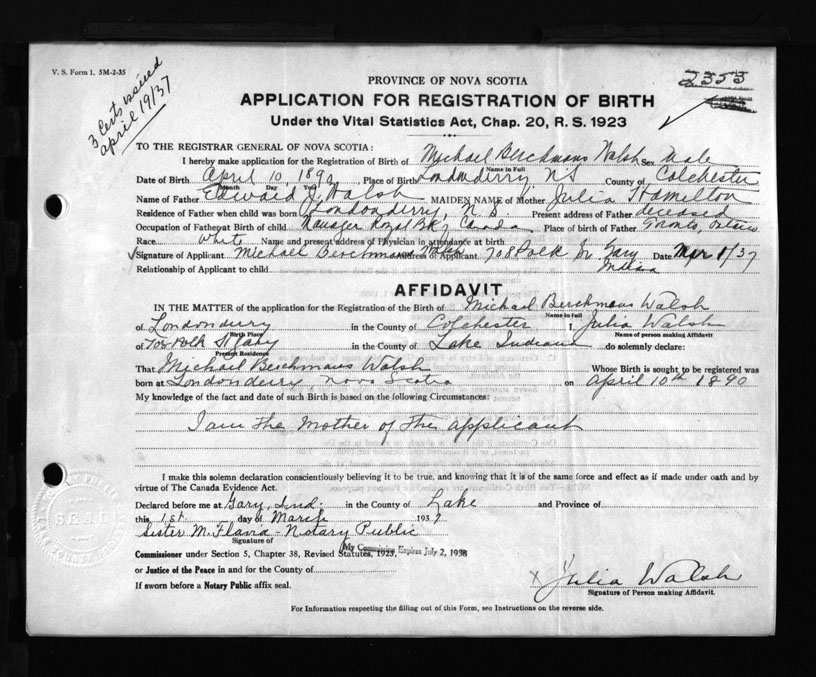 V. S. Form 1. 5M-2-35
3 Certs issued
april 19/37
2353
PROVINCE OF NOVA SCOTIA
APPLICATION FOR REGISTRATION OF BIRTH
Under the Vital Statistics Act, Chap. 20, R. S. 1923
TO THE REGISTRAR GENERAL OF NOVA SCOTIA:
I hereby make application for the Registration of Birth of Michael Berchmans Walsh Sex Male
Name in Full
Date of Birth April 10 1890, Place of Birth Londonderry NS County of Colchester
Month Day
Name of Father Edward J. Walsh MAIDEN NAME of Mother Julia Hamilton
Residence of Father when child was born Londonderry, N. S. Present address of Father deceased
Occupation of Father at Birth of child Manager Royal Bk, Canada Place of birth of Father Ontario
Race White Name and present address of Physician in attendance at birth
Signature of Applicant Michael Berchmans Walsh Address of Applicant 708 Polk Gary Date Mar 1/37
Relationship of Applicant to child
AFFIDAVIT
IN THE MATTER of the application for the Registration of the Birth of Michael Berchmans Walsh
Name in Full
of Londonderry in the County of Colchester I, Julia Walsh
Birth Place Name of person making Affidavit
of 708 Polk St Gary in the County of Lake Indiana do solemnly declare:
Present Residence
That Michael Berchmans Walsh Whose Birth is sought to be registered was
born at Londonderry, Nova Scotia on April 10th 1890
My knowledge of the fact and date of such Birth is based on the following Circumstances:
I am the Mother of the applicant
I make this solemn declaration conscientiously believing it to be true, and knowing that it is of the same force and effect as if made under oath and by
virtue of The Canada Evidence Act.
Declared before me at Gary, Ind. in the County of Lake and Province of
this 1st day of March 1937
Sister M. Flavia - Notary Public
Signature of
My Commission Expires July 2, 1938
Commissioner under Section 5, Chapter 38, Revised Statutes, 1923,
or Justice of the Peace in and for the County of
If sworn before a Notary Public affix seal.
x Julia Walsh
Signature of Person making Affidavit.
For Information respecting the filling out of this Form, see Instructions on the reverse side.